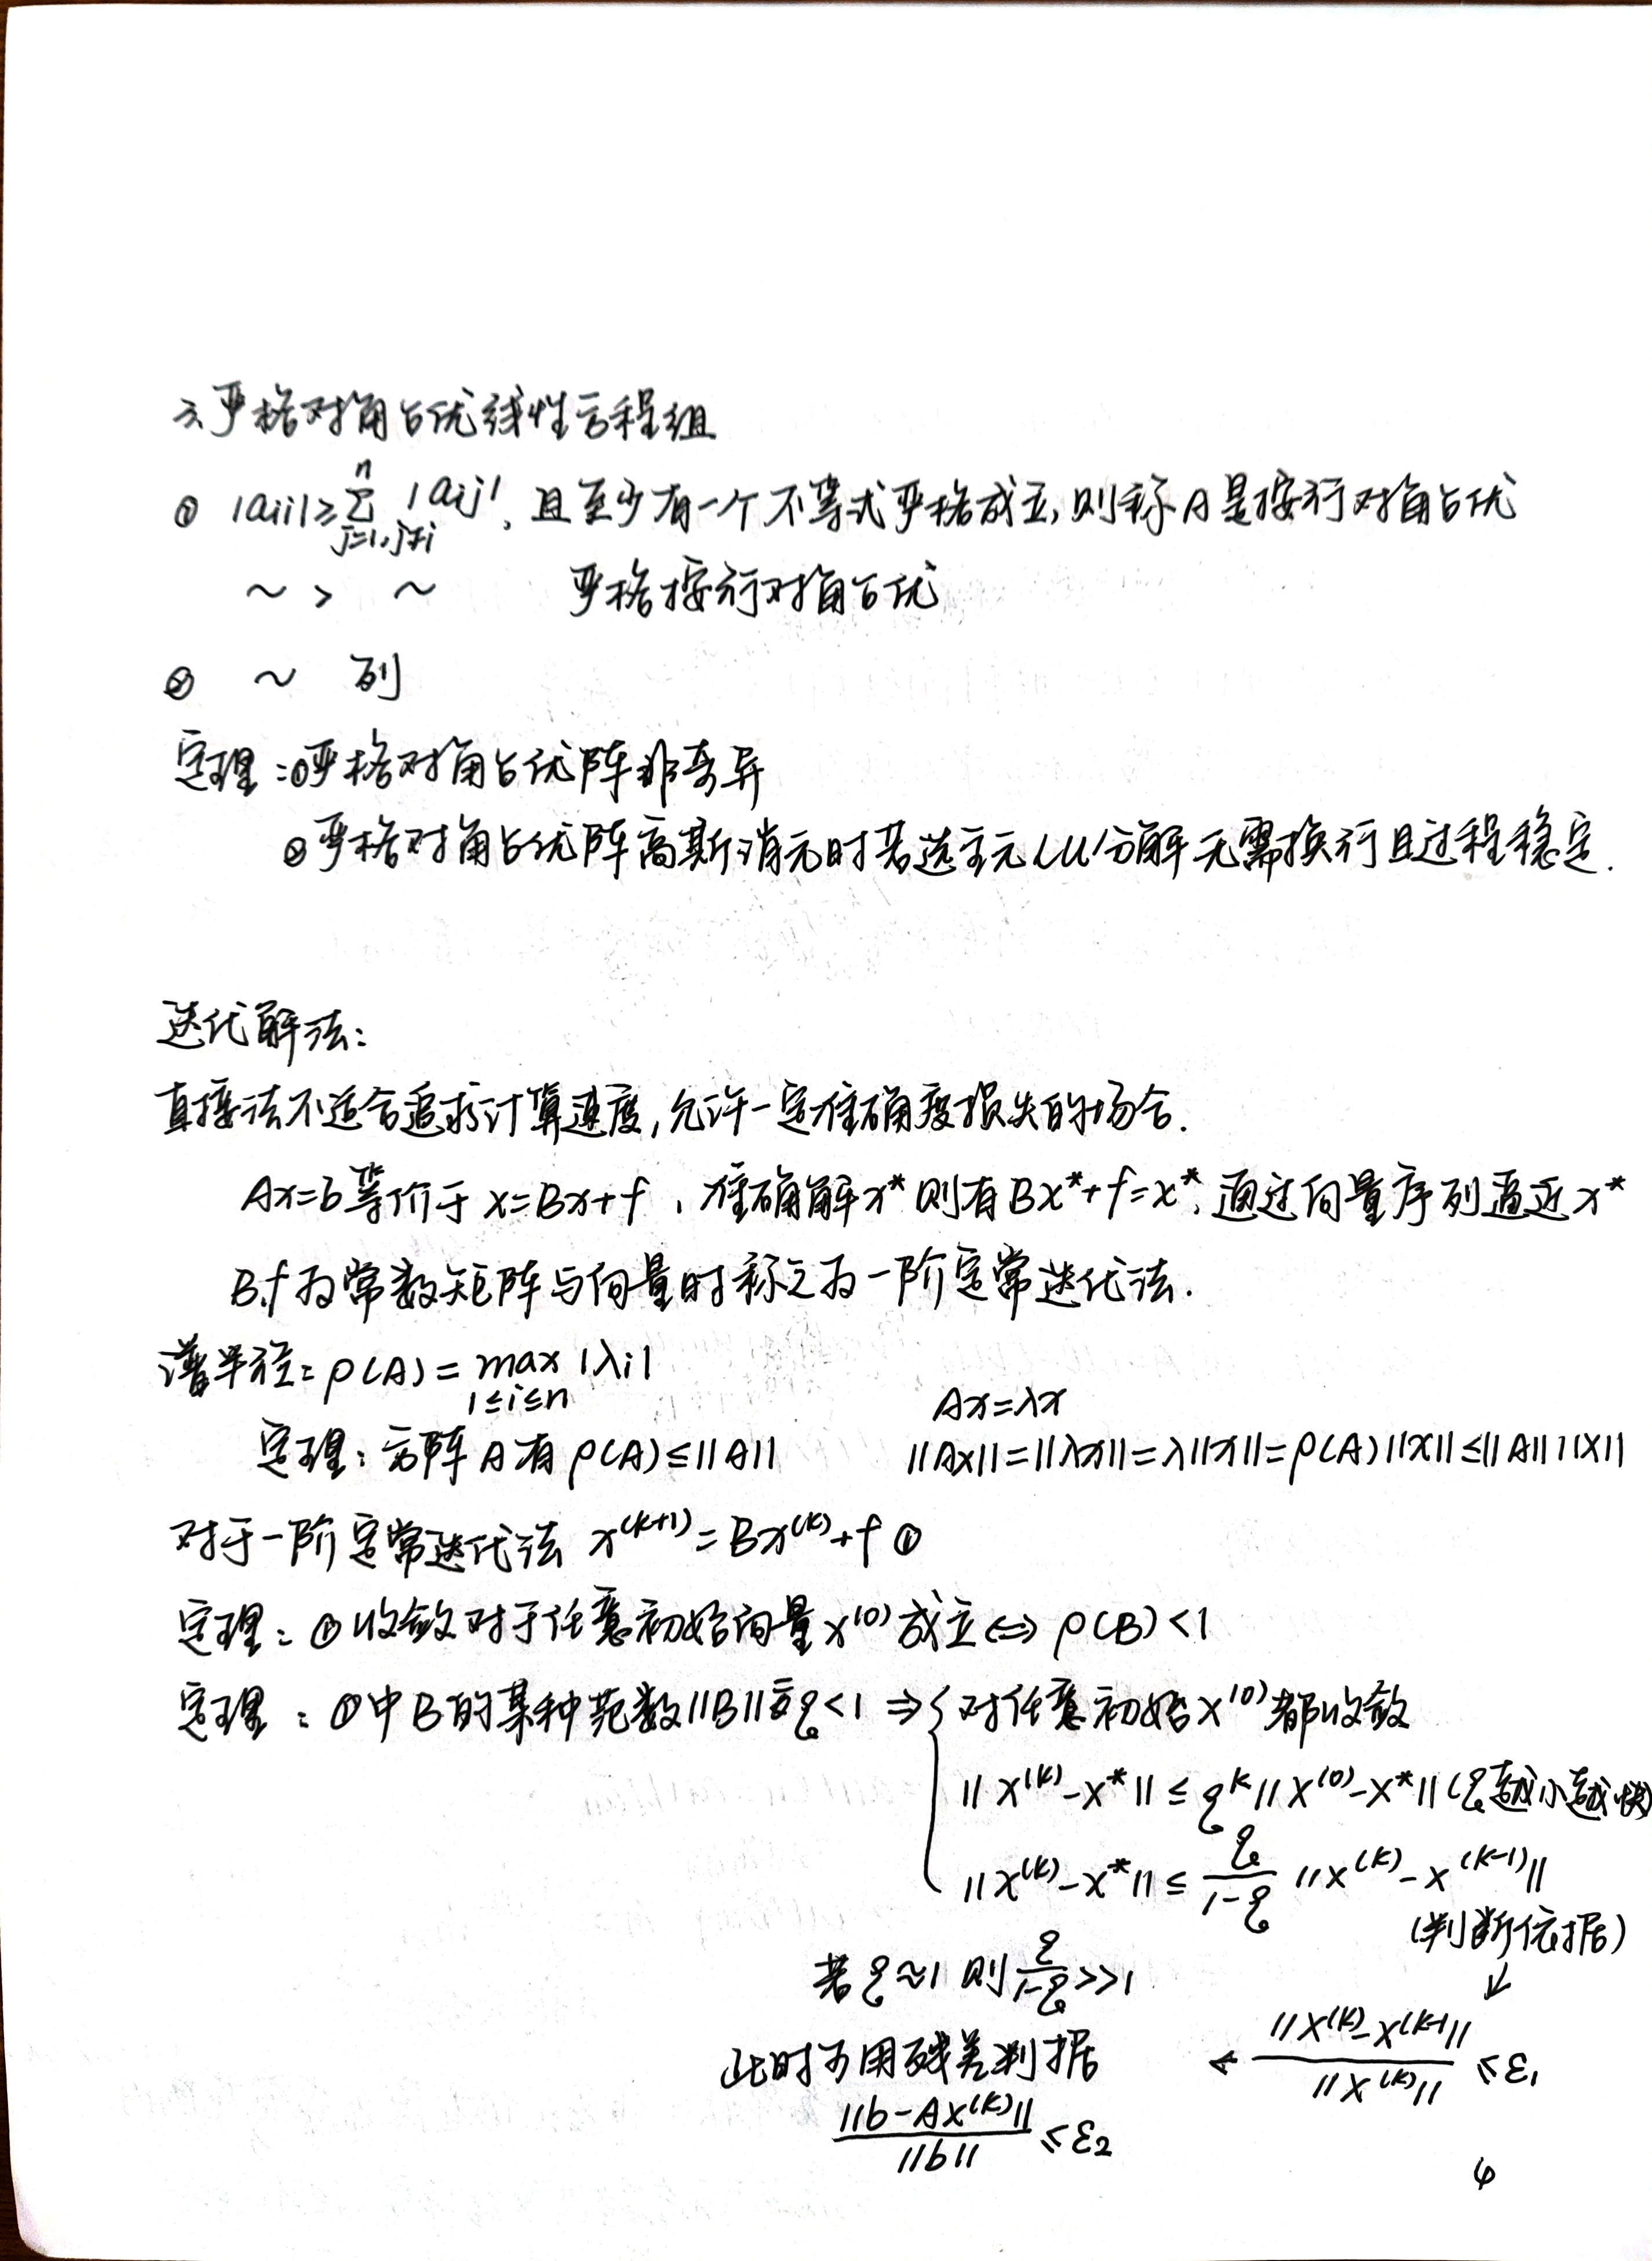 三、严格对角占优线性方程组
① |aii|≥∑(j=1,j≠i)^n |aij|, 且至少有一个不等式严格成立,则称A是按行对角占优
~ > ~ 严格按行对角占优
② ~ 列
定理:①严格对角占优阵非奇异
②严格对角占优阵高斯消元时若选主元LU分解无需换行且过程稳定.
迭代解法:
直接法不适合追求计算速度,允许一定准确度损失的场合.
Ax=b等价于x=Bx+f,准确解x*则有Bx*+f=x*,通过向量序列逼近x*
B,f为常数矩阵与向量时称之为一阶定常迭代法.
谱半径:ρ(A)=max(1≤i≤n)|λi|
Ax=λx
定理:方阵A有ρ(A)≤||A|| ||Ax||=||λx||=λ||x||=ρ(A)||x||≤||A||||x||
对于一阶定常迭代法 x^(k+1)=Bx^(k)+f ①
定理:①收敛对于任意初始向量x^(0)成立⇔ρ(B)<1
定理:①中B的某种范数||B|| q<1 ⇒{对任意初始x^(0)都收敛
||x^(k)-x*||≤q^k||x^(0)-x*||(q越小越快)
||x^(k)-x*||≤q/(1-q) ||x^(k)-x^(k-1)||
(判断依据)
若q≈1 则 q/(1-q)>>1 ↓
此时可用残差判据 ← ||x^(k)-x^(k-1||/||x^(k)||≤ε1
||b-Ax^(k)||/||b||≤ε2